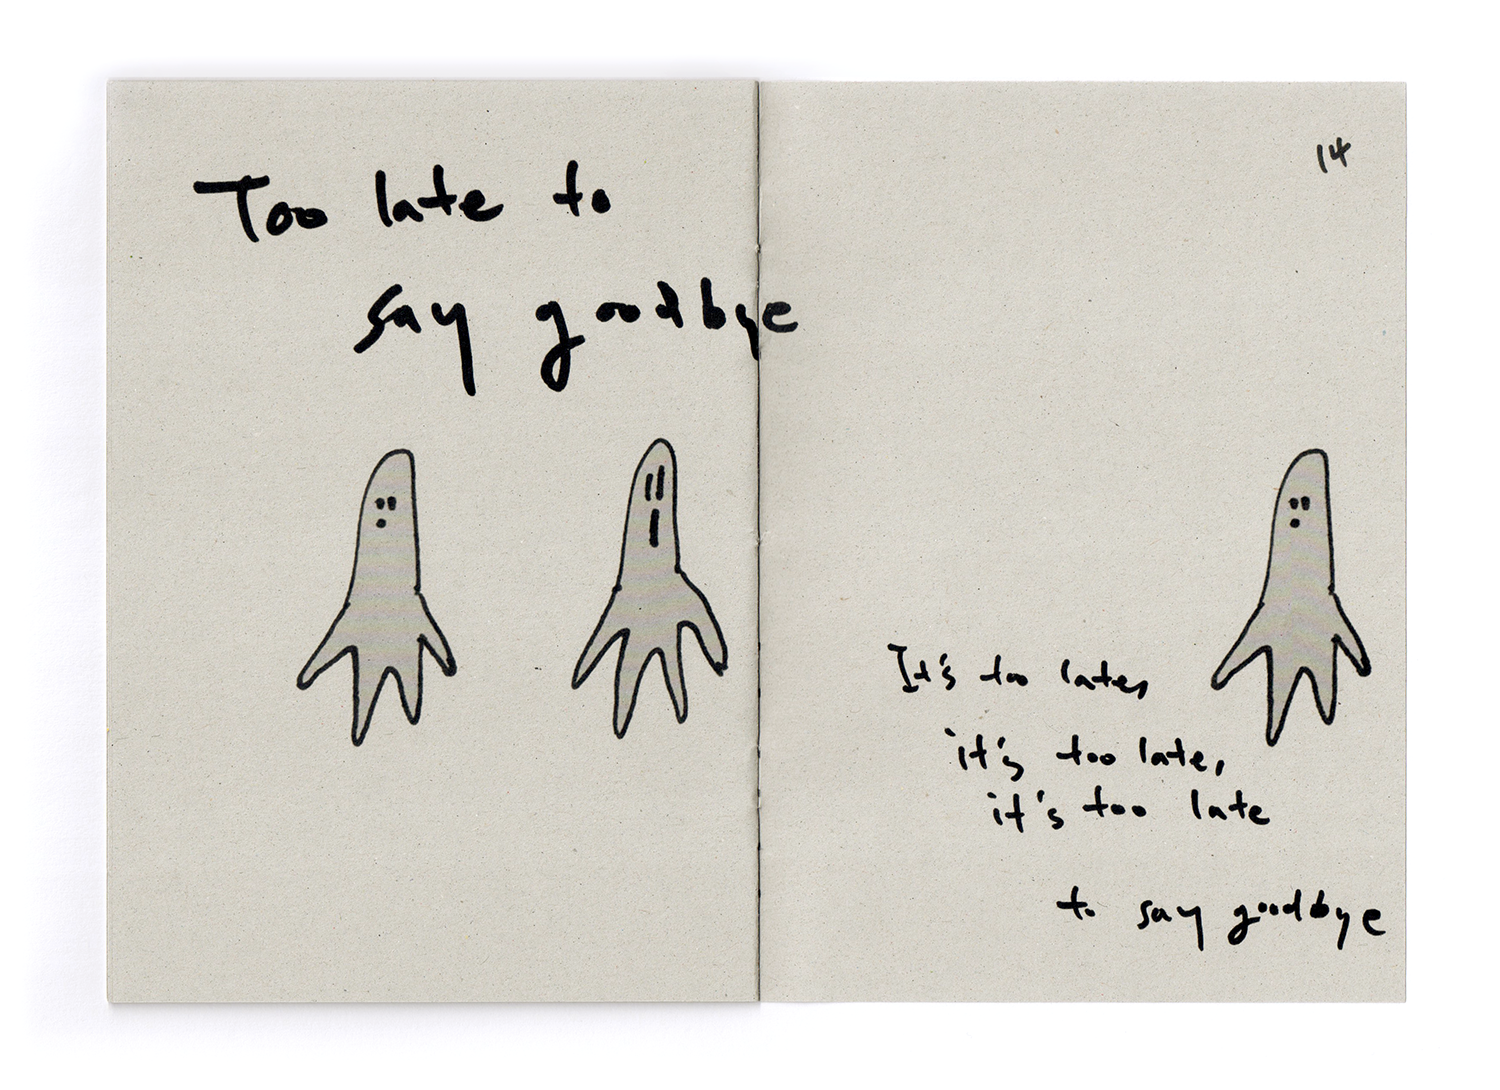 Too late to
say goodbye
14
It's too late,
it's too late,
it's too late
to say goodbye